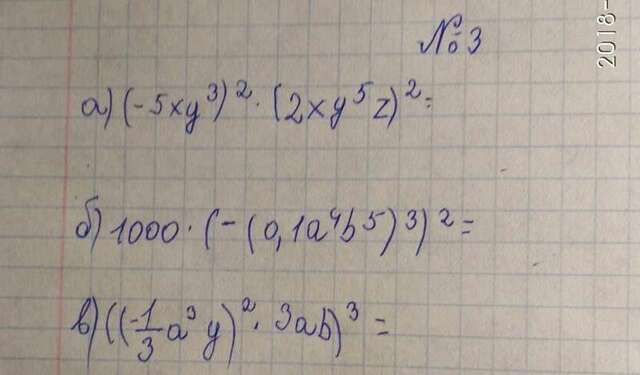 №3
2018-
а) (-5xy³)² · (2xy⁵z)² =
б) 1000 · (-(0,1a⁴b⁵)³)² =
в) ((-1/3 a³y)² · 3ab)³ =